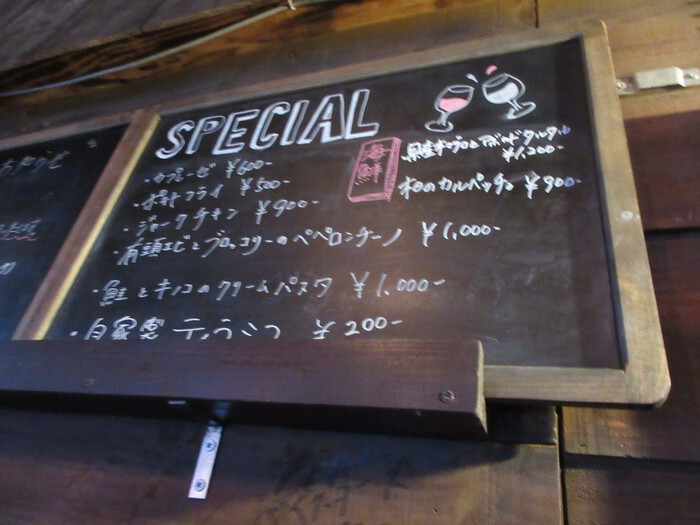 SPECIAL
・カプレーゼ ¥600-
・ポテトフライ ¥500-
・ジャークチキン ¥900-
・有頭エビとブロッコリーのペペロンチーノ ¥1,000-
・鮭とキノコのクリームパスタ ¥1,000-
・自家製ティラミス ¥200-
海鮮
とアボカドタルタル
¥1,200-
本日のカルパッチョ ¥900-